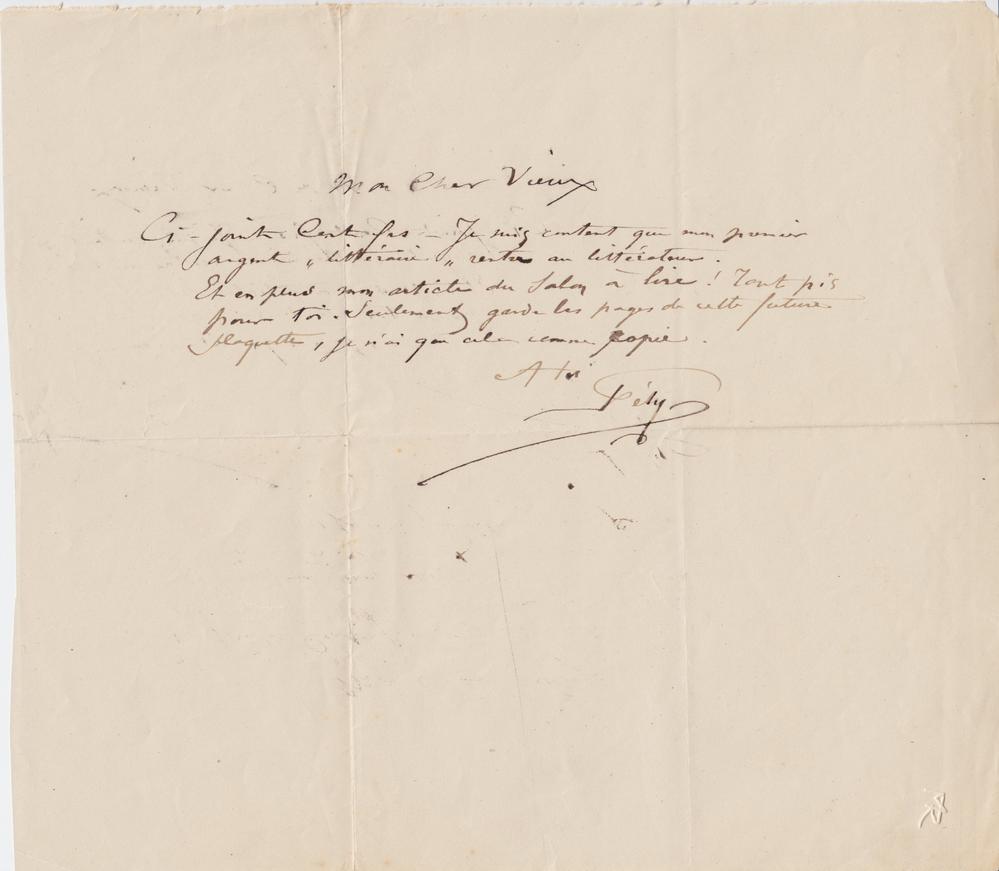 Mon Cher Vieux
Ci-joint Cent frs - Je suis content que mon premier
argent „ littéraire „ rentre au littérateur.
Et en plus mon article du Salon à lire ! Tant pis
pour toi. Seulement garde les pages de cette future
plaquette, je n'ai que cela comme copie.
A toi